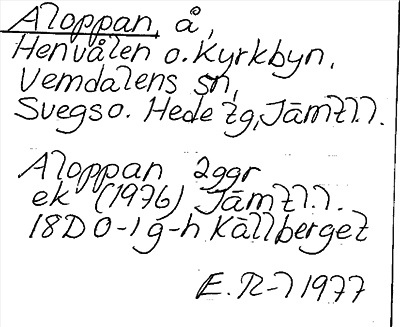 Aloppan, å,
Henvålen o. Kyrkbyn,
Vemdalens sn,
Svegs o. Hede tg, Jämtl.l.
Aloppan 2ggr
ek (1976) Jämtl.l.
18D 0-1 g-h Källberget
E. R-l 1977